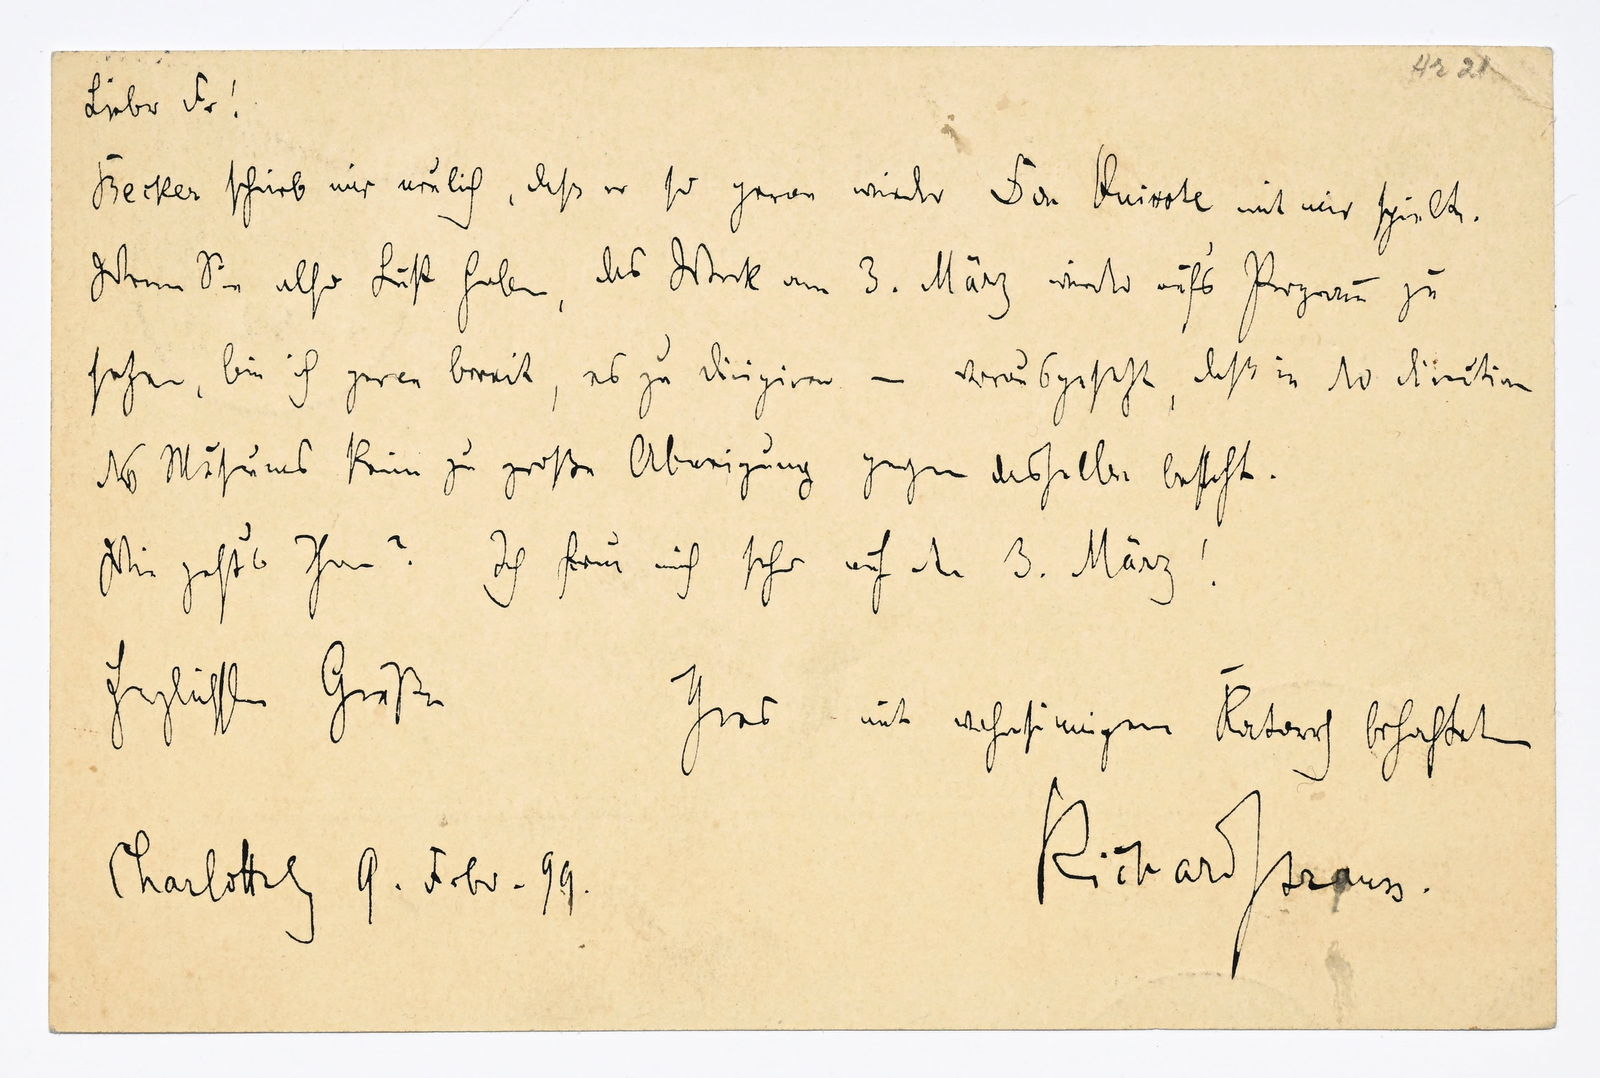 Hr 21
Lieber Fr!
Becker schrieb mir neulich, daß er so gerne wieder Don Quixote mit mir spielte.
Wenn Sie also Lust haben, das Werk am 3. März wieder auf's Program̄ zu
setzen, bin ich gerne bereit, es zu dirigiren — vorausgesetzt, daß in der direction
des Museums keine zu große Abneigung gegen dasselbe besteht.
Wie geht's Ihnen? Ich freue mich sehr auf den 3. März!
Herzlichsten Grüßen Ihres mit wahnsinnigem Katarrh behafteten
Richard Strauss.
Charlottenbg 9. Febr. 99.